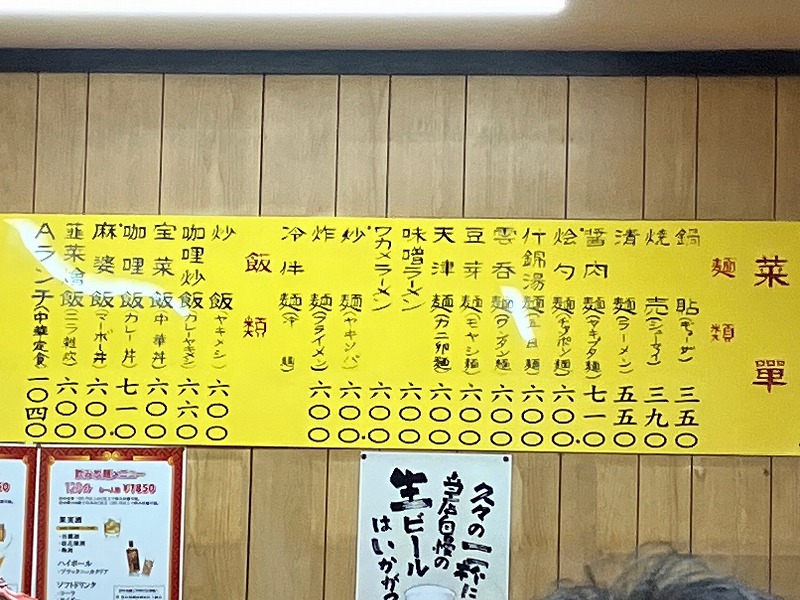 菜單
麺類
鍋貼(ギョーザ)三五〇
焼売(シューマイ)三九〇
清麺(ラーメン)五五〇
醤肉麺(チャキブタ麺)七一〇
烩勺麺(チャンポン麺)六〇〇
什錦湯麺(五目麺)六〇〇
雲呑麺(ワンタン麺)六〇〇
豆芽麺(モヤシ麺)六〇〇
天津麺(カニ卵麺)六〇〇
味噌ラーメン六〇〇
ワカメラーメン六〇〇
炒麺(ヤキソバ)六〇〇
炸麺(フライメン)六〇〇
冷伴麺(冷麺)
飯類
炒飯(ヤキメシ)六〇〇
咖哩炒飯(カレーヤキメシ)六六〇
宝菜飯(中華丼)六〇〇
咖哩飯(カレー丼)七一〇
麻婆飯(マーボー丼)六〇〇
韮菜燴飯(ニラ雑炊)六〇〇
Aランチ(中華定食)一〇四〇
飲み放題メニュー
120分 お一人様 ¥1850
果実酒
ハイボール
ソフトドリンク
久々の一杯に
当店自慢の
生ビール
はいかが